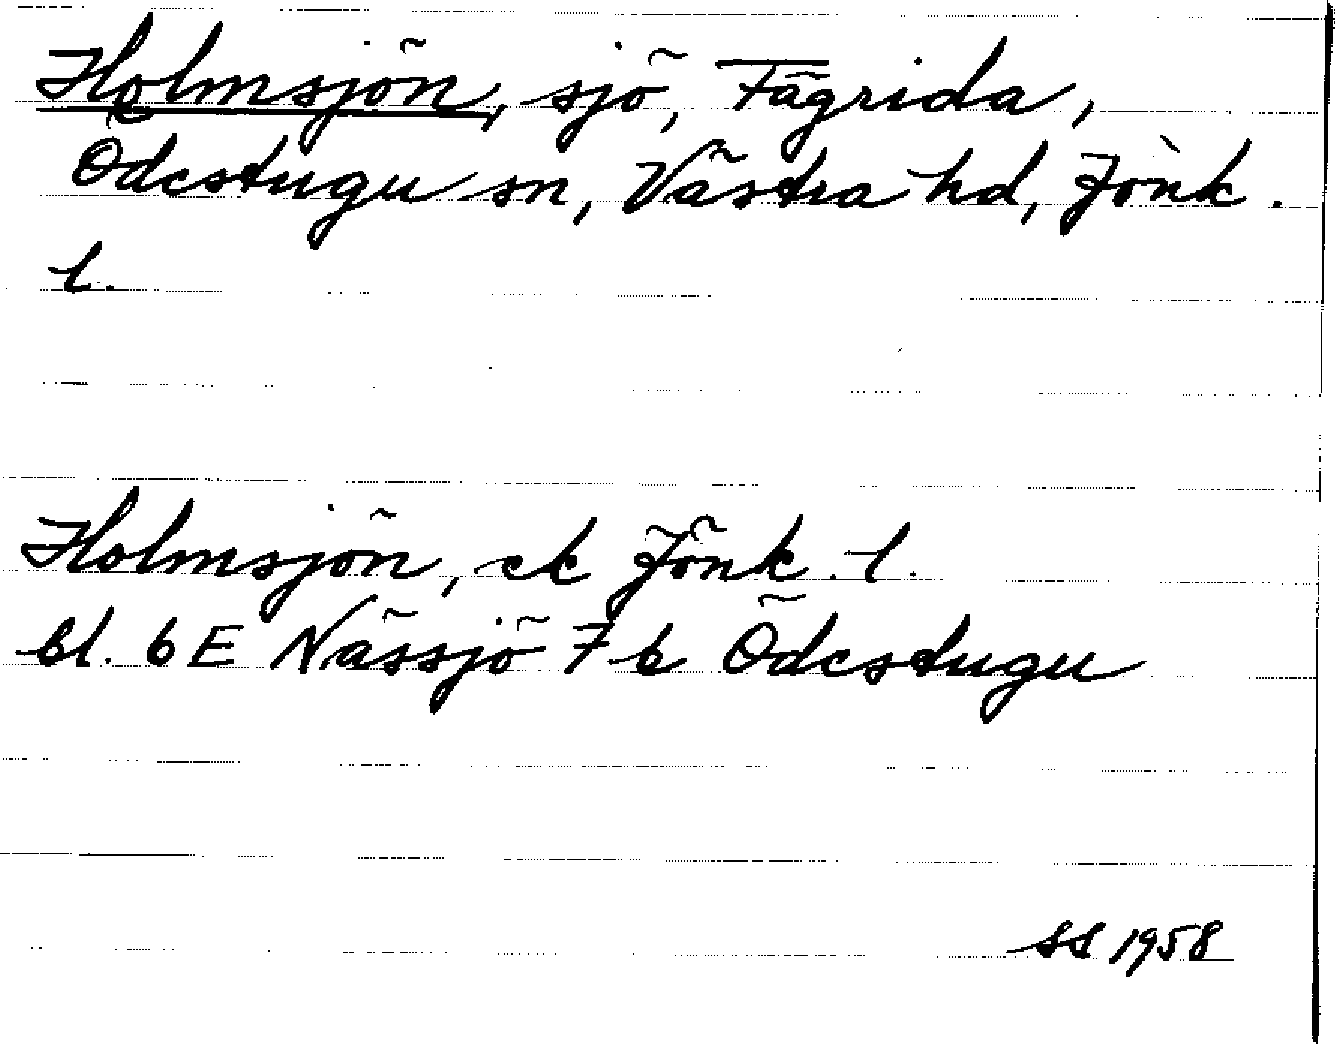 Holmsjön, sjö, Fägrida,
Ödestugu sn, Västra hd, Jönk.
l.
Holmsjön, ek Jönk. l.
bl. 6E Nässjö 7b Ödestugu
SS 1958